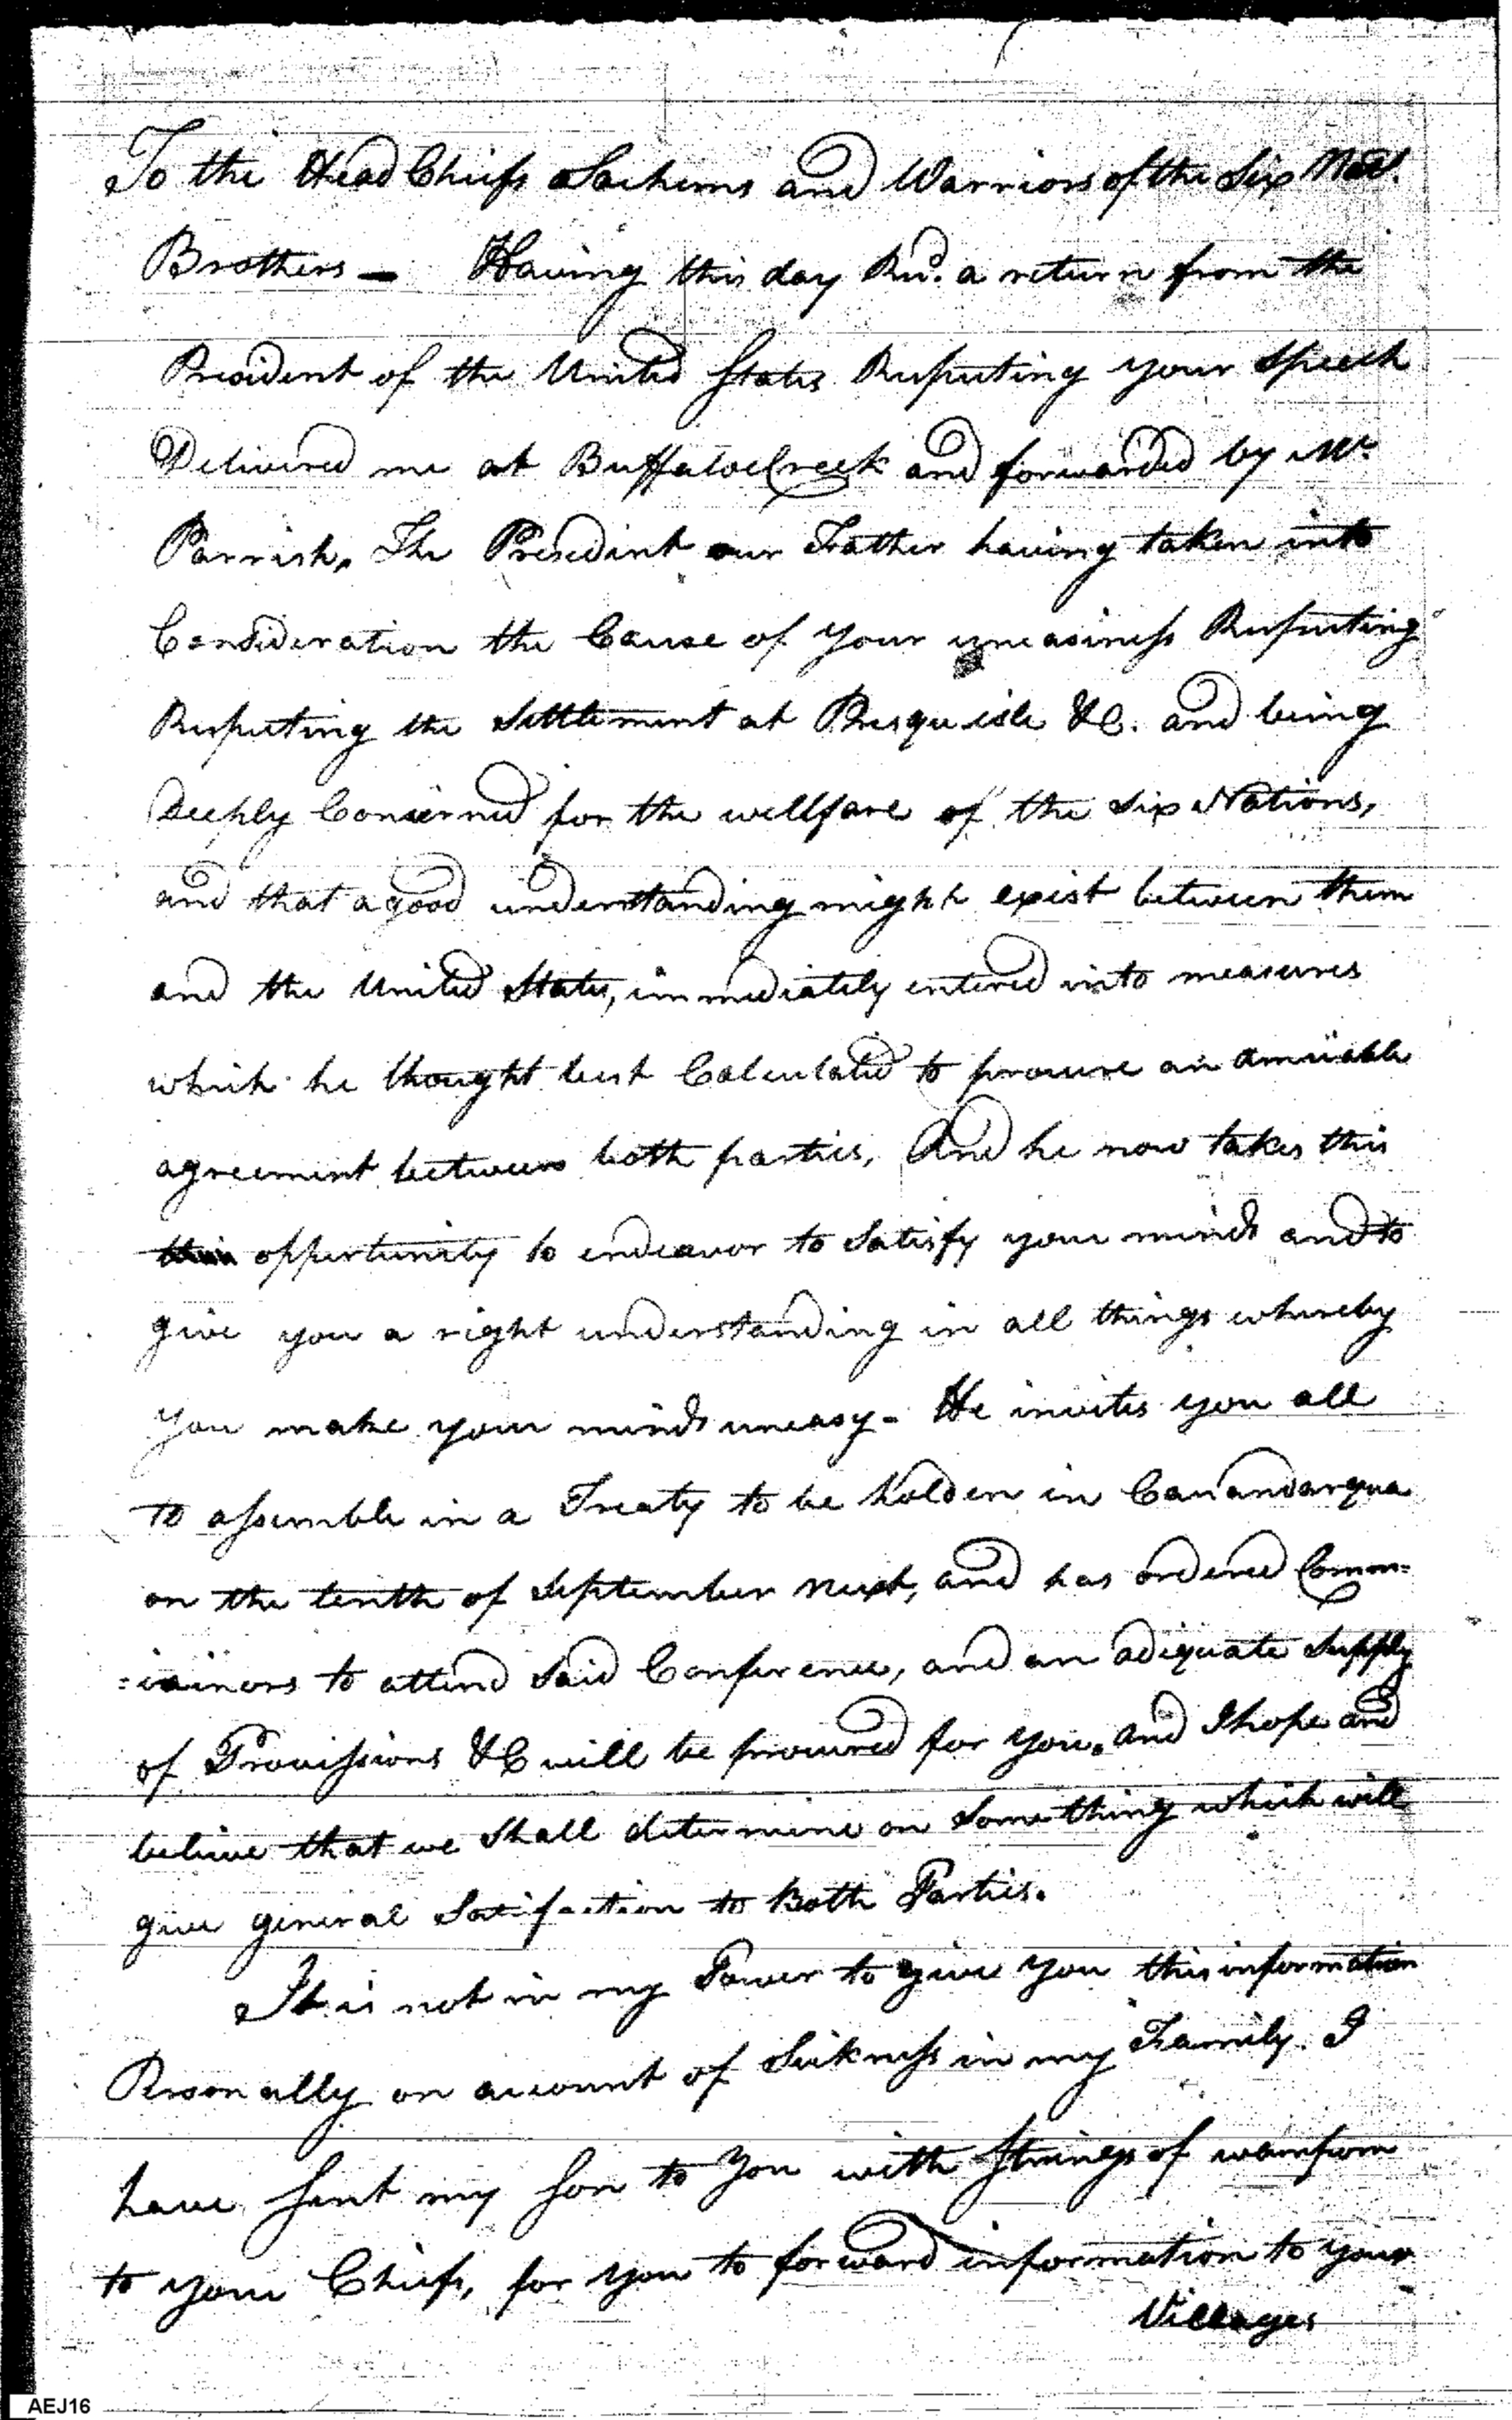 To the Head Chiefs Sachems and Warriors of the Six Nats.
Brothers — Having this day Recd. a return from the
President of the United States Respecting your Speech
Delivered me at Buffaloe Creek and forwarded by Mr.
Parrish, The Presedint our Father having taken into
Consideration the Cause of your uneasiness Respecting
Respecting the Settlement at Presqu isle &C. and being
deeply Concerned for the wellfare of the Six Nations,
and that a good understanding might exist between them
and the United States, immediately entered into measures
which he thought best Calculated to procure an amicable
agreement between both parties, And he now takes this
opportunity to endeavor to Satisfy your minds and to
give you a right understanding in all things whereby
you make your minds uneasy - He invites you all
to assemble in a Treaty to be holden in Canandarqua
on the tenth of September next, and has ordered Comm=
=isiners to attend Said Conference, and an adequate Supply
of Provissions &C will be procured for you. and I hope and
believe that we Shall determine on Something which will
give general Satisfaction to Both Parties.
It is not in my Power to give you this information
Personally on account of Sickness in my Family. I
have Sent my Son to You with Strings of wampom
to your Chiefs, for you to forward information to your
Villages
AEJ16